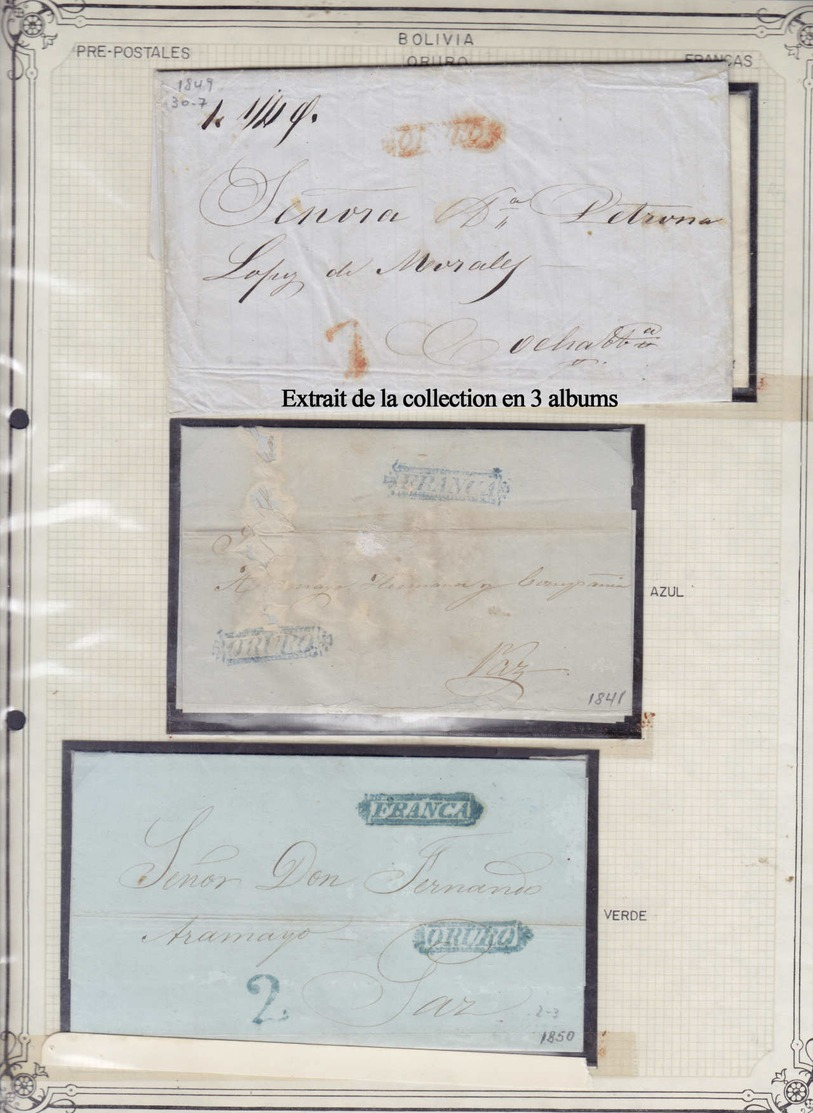 BOLIVIA
PRE-POSTALES ORURO FRANCAS
1849
30-7
ORURO
Señora D.ª Petrona
Lopez de Morales
7
Cochabbª
Extrait de la collection en 3 albums
FRANCA
Hermana y Compañia
AZUL
ORURO
Paz
1841
FRANCA
Señor Don Fernando
VERDE
Aramayo ORURO
2 Paz
2-3
1850